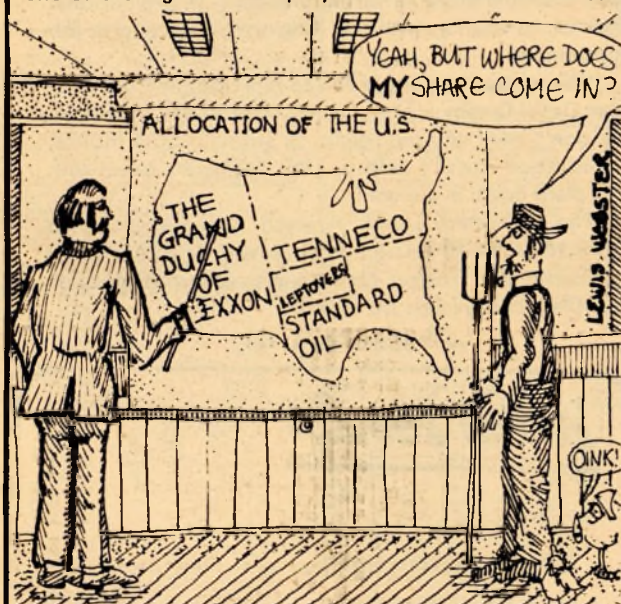 YEAH, BUT WHERE DOES
MY SHARE COME IN?
ALLOCATION OF THE U.S.
THE
GRAND
DUCHY
OF
EXXON
TENNECO
LEFTOVERS
STANDARD
OIL
LEWIS WEBSTER
OINK!